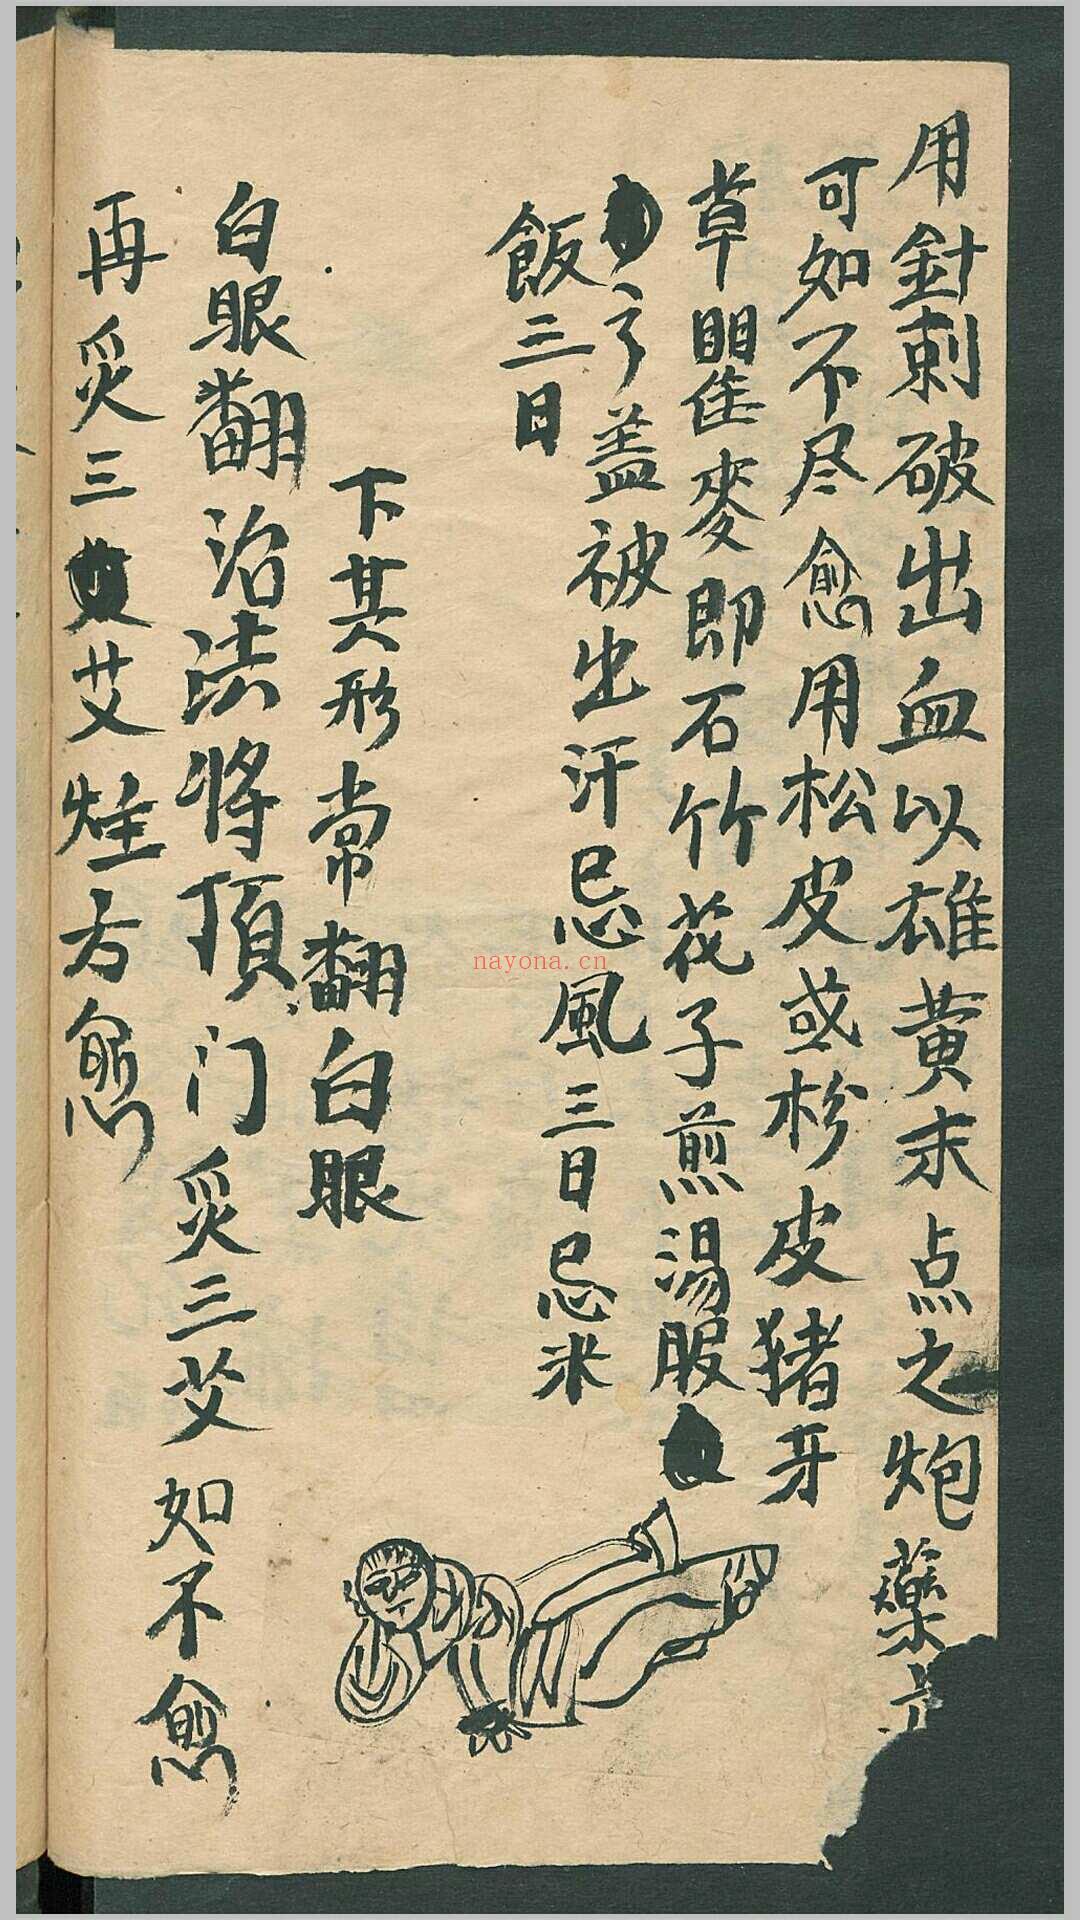 用針刺破出血以雄黃末点之炮藥
可如不尽愈用松皮或枌皮猪牙
草瞿麥即石竹花子煎湯服
了盖被出汗忌風三日忌米
飯三日
下其形常翻白眼
白眼翻治法將頂门炙三艾如不愈
再炙三艾方愈
nayona.cn